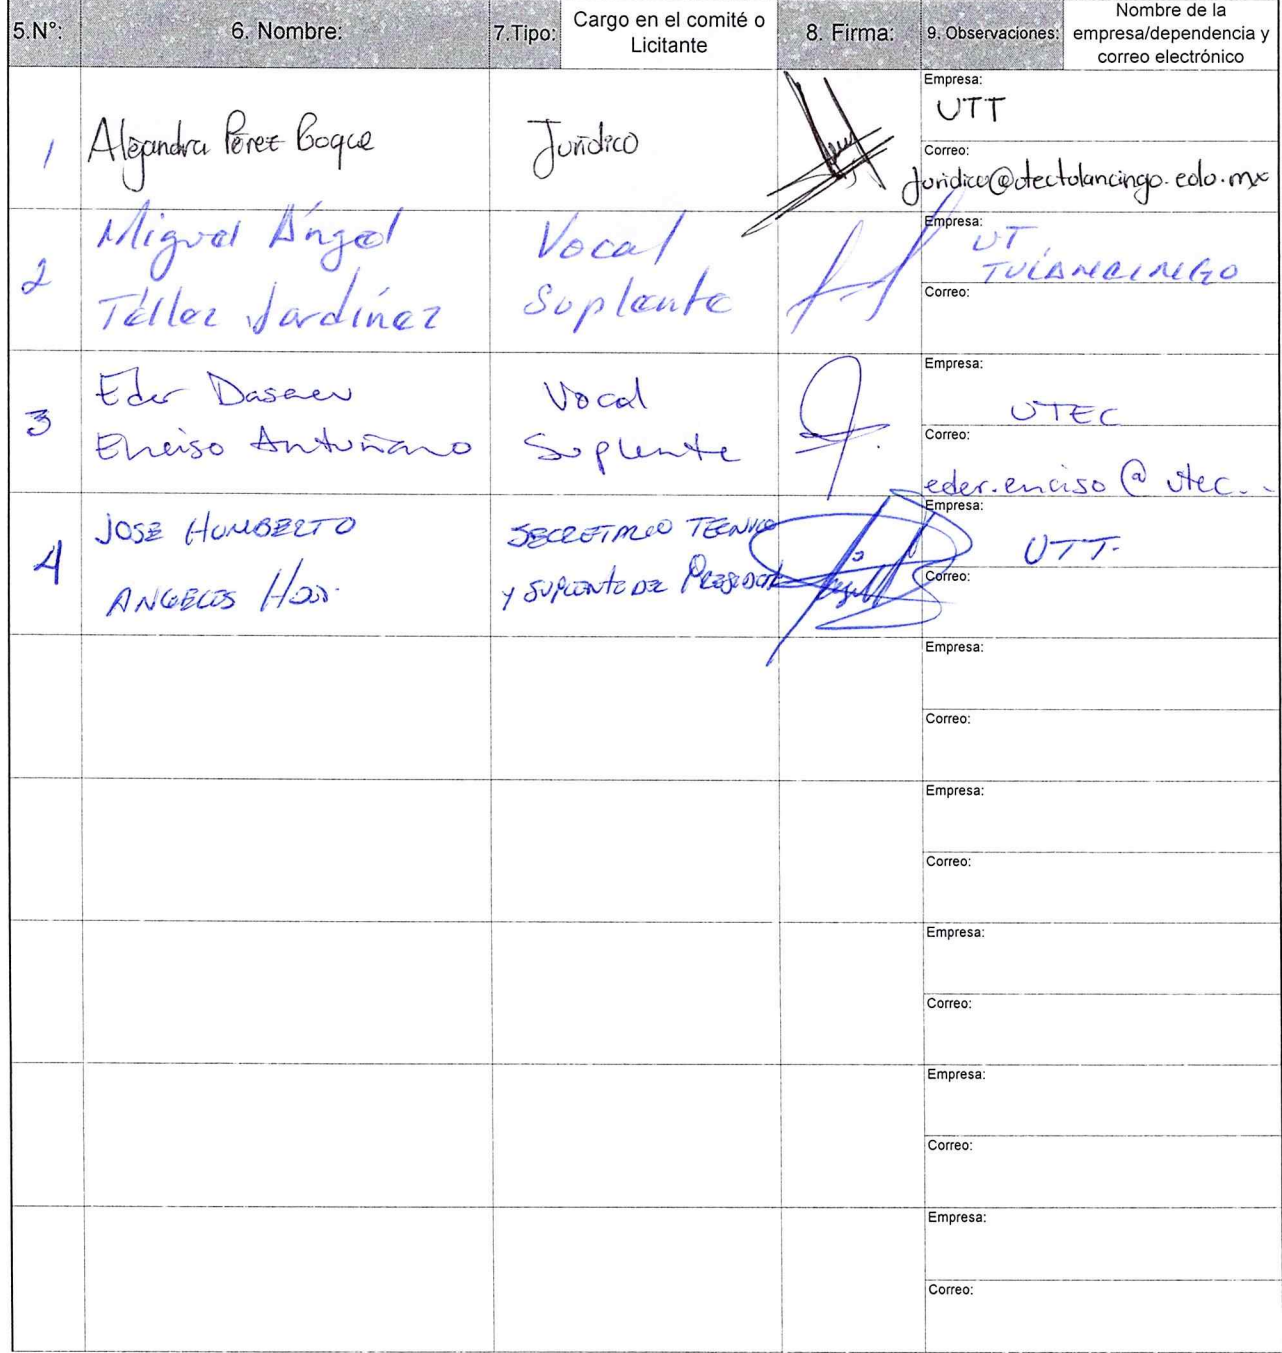 5.N°: 6. Nombre: 7.Tipo: Cargo en el comité o Licitante 8. Firma: 9. Observaciones: Nombre de la empresa/dependencia y correo electrónico
1 Alejandra Pérez Jurídico
Empresa:
UTT
Correo:
Juridico@utectulancingo.edu.mx
2 Miguel Ángel
Téllez Jardínez
Vocal
Suplente
Empresa:
UT
TULANCINGO
Correo:
3 Eder
Enciso Antuñano
Vocal
Suplente
Empresa:
UTEC
Correo:
eder.enciso @ utec..
4 JOSE HUMBERTO
ANGELES
SECRETARIO TECNICO
Y SUPLENTE DEL PRESIDENTE
Empresa:
UTT.
Correo:
Empresa:
Correo:
Empresa:
Correo:
Empresa:
Correo:
Empresa:
Correo:
Empresa:
Correo: